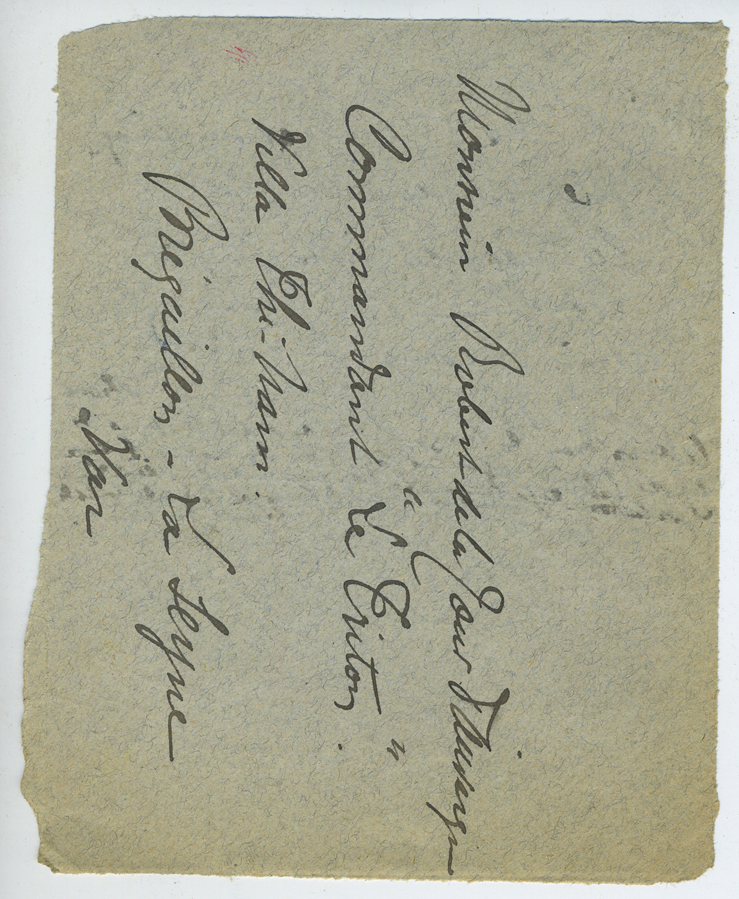 Monsieur Robert de la Tour d'Auvergne
Commandant "Le Triton".
Villa Thi-Nam.
Brégaillon - La Seyne
Var